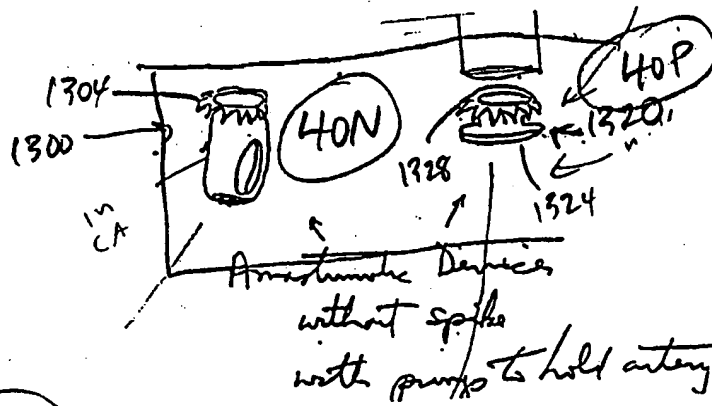 1304
1300
40N
40P
1320
1328
1324
in
CA
Anastomotic Devices
without spike
with to hold artery